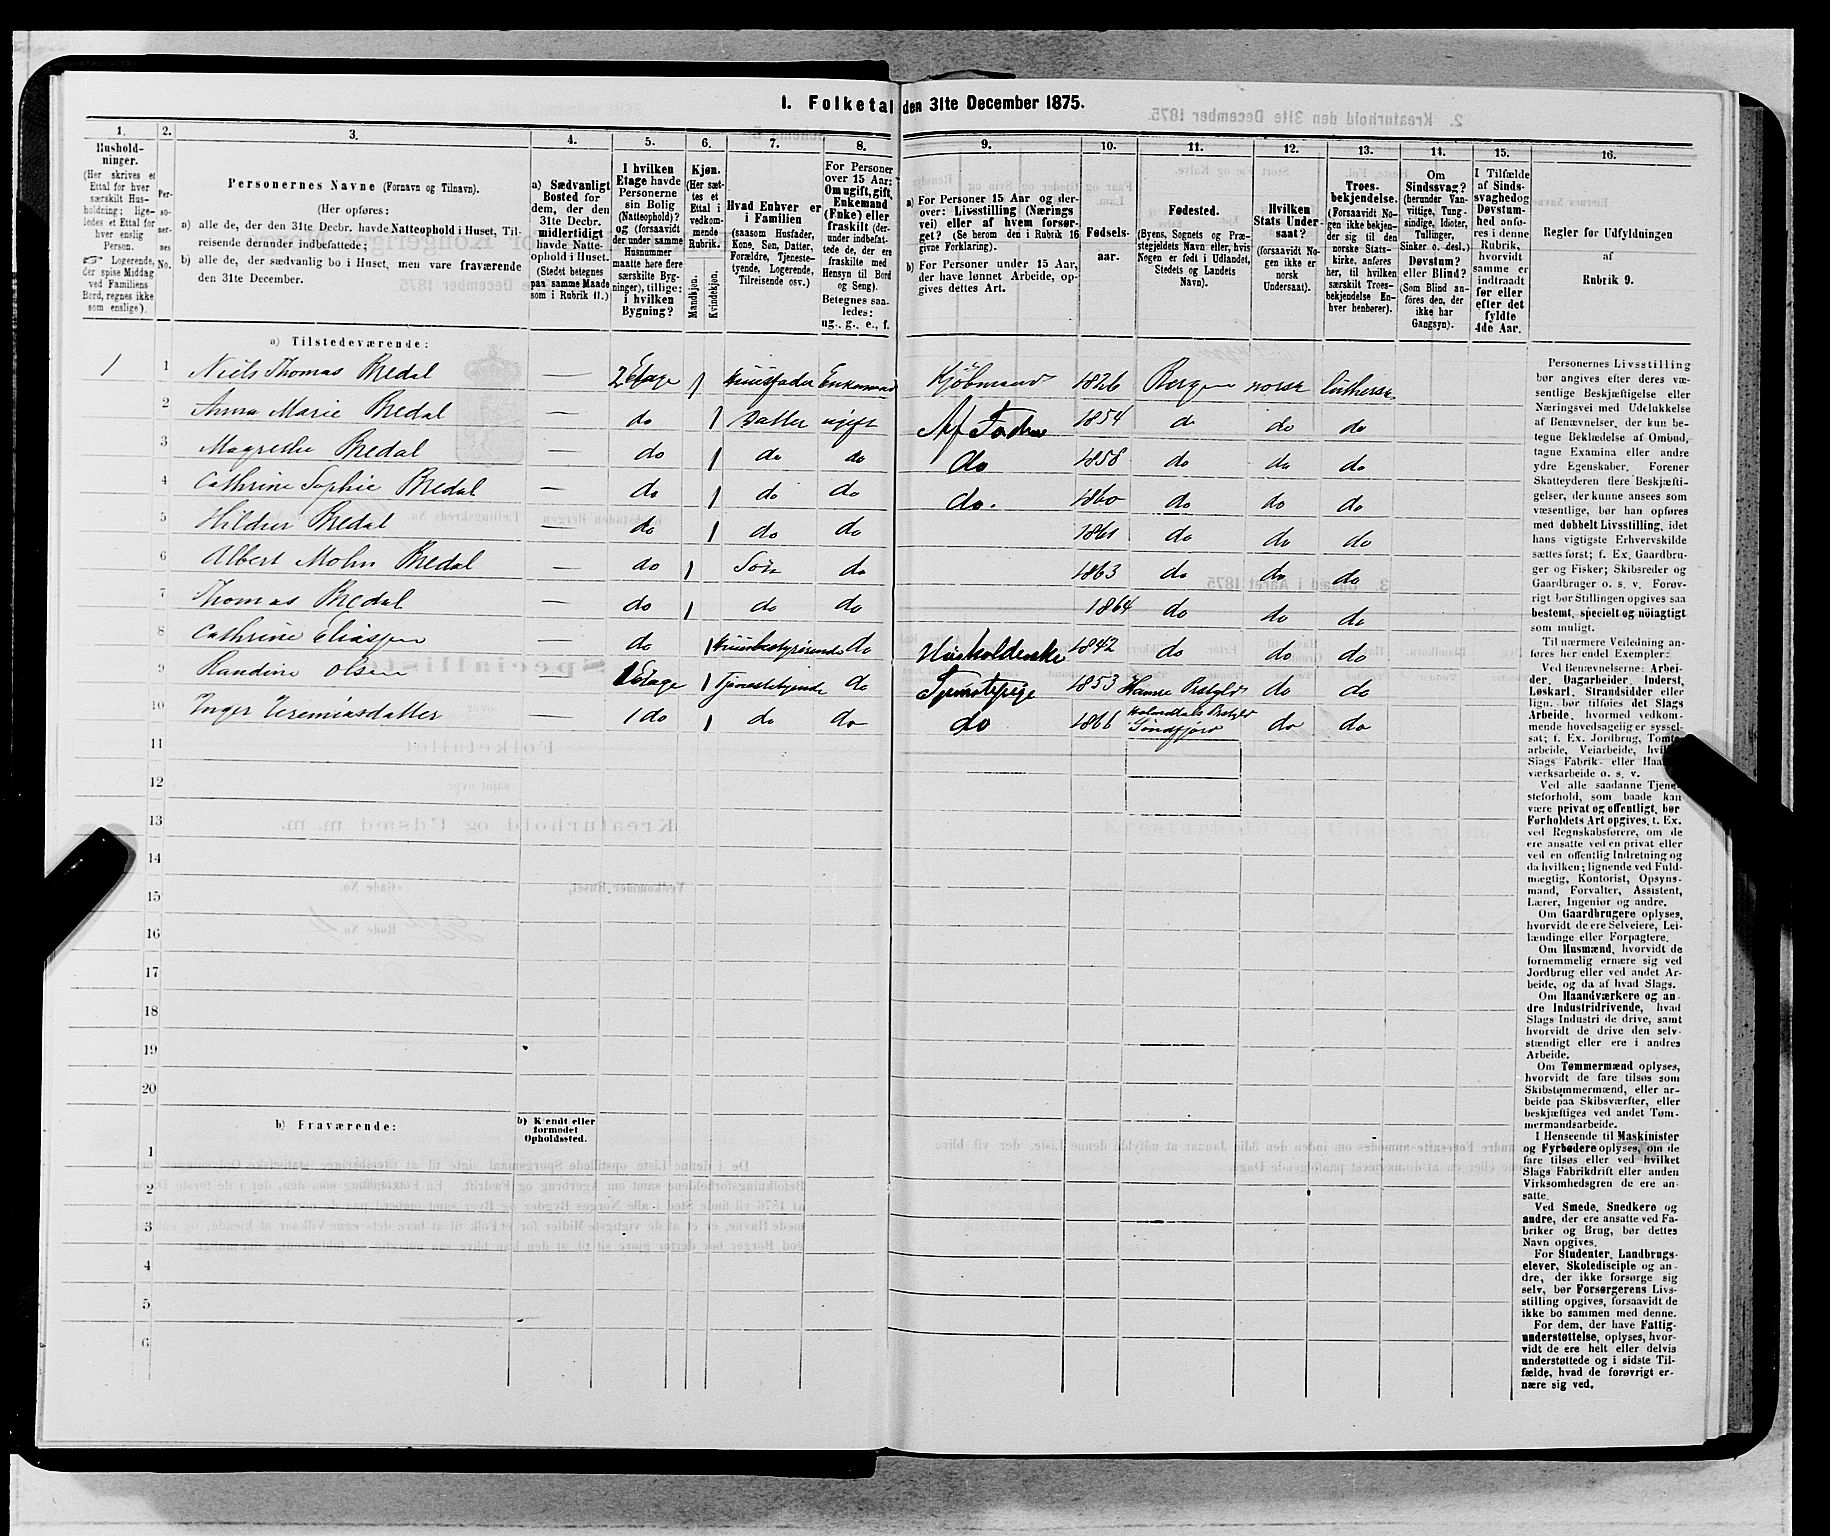 1. Folketal den 31te December 1875.
1.
Hushold-
ninger.
(Her skrives et
Ettal for hver
særskilt Hus-
holdning; lige-
ledes et Ettal for
hver enslig
Person.
Logerende,
der spise Middag
ved Familiens
Bord, regnes ikke
som enslige).
2.
Per-
so-
ner-
nes
No.
3.
Personernes Navne (Fornavn og Tilnavn).
(Her opføres:
a) alle de, der den 31te Decbr. havde Natteophold i Huset, Til-
reisende derunder indbefattede;
b) alle de, der sædvanlig bo i Huset, men vare fraværende
den 31te December.
4.
a) Sædvanligt
Bosted for
dem, der den
31te Decbr.
midlertidigt
havde Natte-
ophold i Huset.
(Stedet betegnes
paa samme Maade
som i Rubrik 11.)
5.
I hvilken
Etage havde
Personerne
sin Bolig
(Natteophold)?
og (forsaavidt
der under samme
Husnummer
maatte høre flere
særskilte Byg-
ninger), tillige:
i hvilken
Bygning?
6.
Kjøn.
(Her sæt-
tes et
Ettal i
vedkom-
mende
Rubrik.
Mandkjøn.
Kvindekjøn.
7.
Hvad Enhver er
i Familien
(saasom Husfader,
Kone, Søn, Datter,
Forældre, Tjeneste-
tyende, Logerende,
Tilreisende osv.)
8.
For Personer
over 15 Aar:
Om ugift, gift,
Enkemand
(Enke) eller
fraskilt (der-
under indbefat-
tede de, der ere
fraskilte med
Hensyn til Bord
og Seng).
Betegnes saa-
ledes:
ug., g., e., f.
9.
a) For Personer 15 Aar og der-
over: Livsstilling (Nærings
vei) eller af hvem forsør-
get? (Se herom den i Rubrik 16
givne Forklaring).
b) For Personer under 15 Aar,
der have lønnet Arbeide, op-
gives dettes Art.
10.
Fødsels-
aar.
11.
Fødested.
(Byens, Sognets og Præ-
stegjeldets Navn eller, hvis
Nogen er født i Udlandet,
Stedets og Landets
Navn).
12.
Hvilken
Stats Under-
saat?
(forsaavidt No-
gen ikke er
norsk
Undersaat).
13.
Troes-
bekjendelse.
(Forsaavidt No-
gen ikke bekjen-
der sig til den
norske Stats-
kirke, anføres
her, til hvilken
særskilt Troes-
bekjendelse En-
hver henhører).
14.
Om
Sindssvag?
(herunder Van-
vittige, Tung-
sindige, Idioter,
Tullinger,
Sinker o. desl.)
Døvstum?
eller Blind?
(Som Blind an-
føres den, der
ikke har
Gangsyn).
15.
I Tilfælde
af Sinds-
svaghed og
Døvstum-
hed anfø-
res i denne
Rubrik,
hvorvidt
samme er
indtraadt
før eller
efter det
fyldte
4de Aar.
16.
Regler for Udfyldningen
af
Rubrik 9.
a) Tilstedeværende:
1 1 Niels Thomas Bredal 2 Etage 1 Huusfader Enkemand Kjøbmand 1826 Bergen norsk luthersk
2 Anna Marie Bredal — do 1 Datter ugift Af Faderen 1854 do do do
3 Magrethe Bredal — do 1 do do do 1858 do do do
4 Cathrine Sophie Bredal — do 1 do do do. 1860 do do do
5 Bredal — do 1 do do 1861 do do do
6 Albert Mohn Bredal — do 1 Søn do 1863 do do do
7 Thomas Bredal — do 1 do do 1864 do do do
8 Cathrine Eliassen — do 1 Huusbestyrerinde do 1842 do do do
9 Randine Olsen — 1 Etage 1 Tjenestetyende do Tjenestepige 1853 do do
10 Inger Jeremiasdatter — 1 do 1 do do do 1866 Søndfjord do do
11
12
13
14
15
16
17
18
19
20
b) Fraværende:
b) Kjendt eller
formodet
Opholdssted.
1
2
3
4
5
6
Personernes Livsstilling
bør angives efter deres væ-
sentlige Beskjæftigelse eller
Næringsvei med Udelukkelse
af Benævnelser, der kun be-
tegne Beklædelse af Ombud,
tagne Examina eller andre
ydre Egenskaber. Forener
Skatteyderen flere Beskjæfti-
gelser, der kunne ansees som
væsentlige, bør han opføres
med dobbelt Livsstilling, idet
hans vigtigste Erhvervskilde
sættes først; f. Ex. Gaardbru-
ger og Fisker; Skibsreder og
Gaardbruger o. s. v. Forøv-
rigt bør Stillingen opgives saa
bestemt, specielt og nöiagtigt
som muligt.
Til nærmere Veiledning an-
føres her endel Exempler:
Ved Benævnelserne: Arbei-
der, Dagarbeider, Inderst,
Løskarl, Strandsidder eller
lign. bør tilføies det Slags
Arbeide, hvormed vedkom-
mende hovedsagelig er syssel-
sat; f. Ex. Jordbrug, Tomte-
arbeide, Veiarbeide, hvilket
Slags Fabrik- eller Haand-
værksarbeide o. s. v.
Ved alle saadanne Tjene-
steforhold, som baade kan
være privat og offentligt, bør
Forholdets Art opgives, t. Ex.
ved Regnskabsførere, om de
ere ansatte ved en privat eller
ved en offentlig Indretning og
da hvilken; lignende ved Fuld-
mægtig, Kontorist, Opsyns-
mand, Forvalter, Assistent,
Lærer, Ingeniør og andre.
Om Gaardbrugere oplyses,
hvorvidt de ere Selveiere, Lei-
lændinge eller Forpagtere.
Om Husmænd, hvorvidt de
fornemmelig ernære sig ved
Jordbrug eller ved andet Ar-
beide, og da af hvad Slags.
Om Haandværkere og an-
dre Industridrivende, hvad
Slags Industri de drive, samt
hvorvidt de drive den selv-
stændigt eller ere i andres
Arbeide.
Om Tømmermænd oplyses,
hvorvidt de fare tilsøs som
Skibstømmermænd, eller ar-
beide paa Skibsværfter, eller
beskjæftiges ved andet Tøm-
mermandsarbeide.
I Henseende til Maskinister
og Fyrbødere oplyses, om de
fare tilsøs eller ved hvilket
Slags Fabrikdrift eller anden
Virksomhedsgren de ere an-
satte.
Ved Smede, Snedkere og
andre, der ere ansatte ved Fa-
briker og Brug, bør dettes
Navn opgives.
For Studenter, Landbrugs-
elever, Skoledisciple og an-
dre, der ikke forsørge sig
selv, bør Forsørgerens Livs-
stilling opgives, forsaavidt de
ikke bo sammen med denne.
For dem, der have Fattig-
understøttelse, oplyses, hvor-
vidt de ere helt eller delvis
understøttede og i sidste Til-
fælde, hvad de forøvrigt er-
nære sig ved.